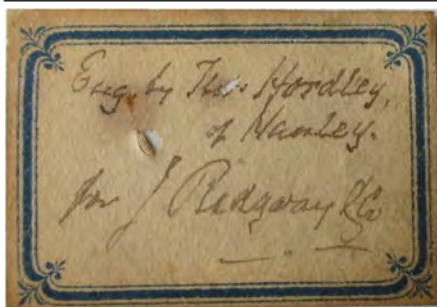 Eng. by Thos Hordley,
of Hanley.
for J Ridgway & Co